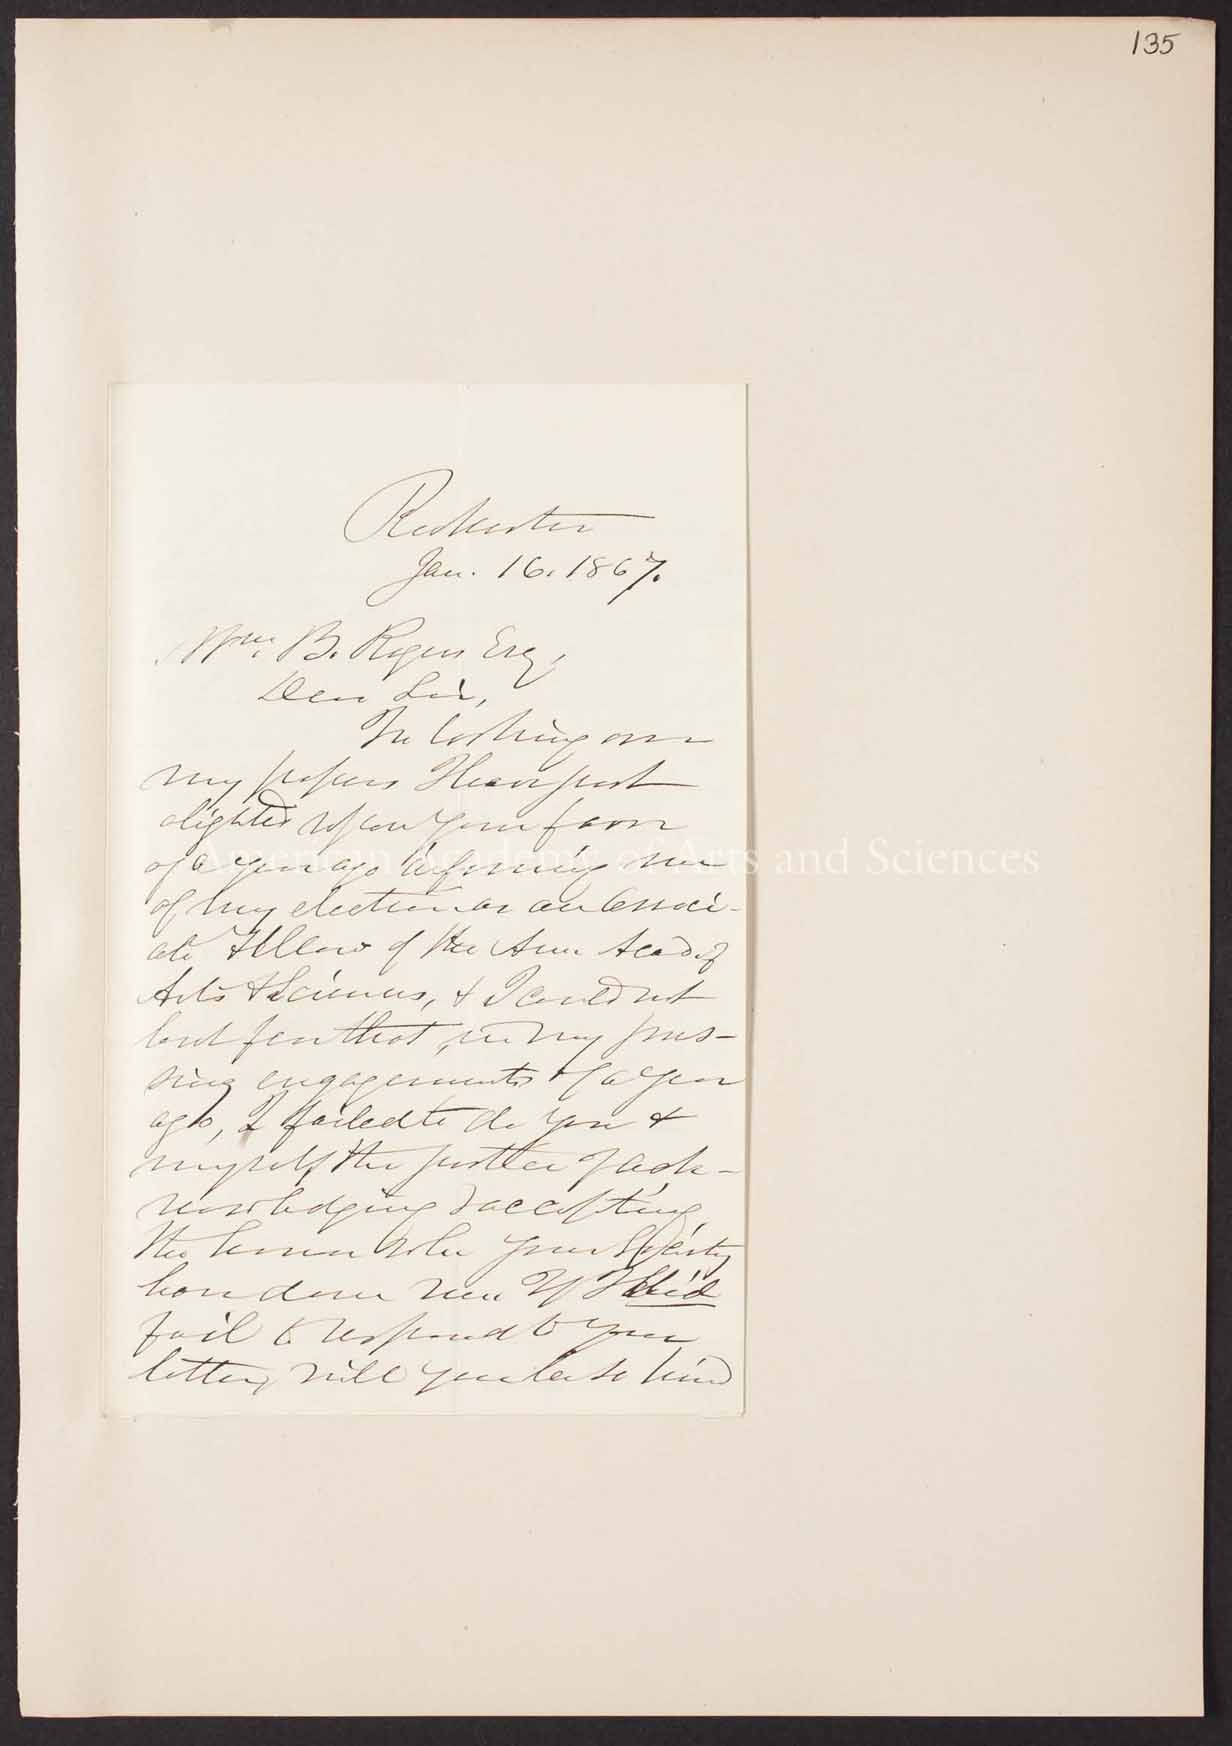 135
Rochester
Jan. 16. 1867.
Wm. B. Rogers Esq,
Dear Sir,
In looking over
my papers I have just
alighted upon your favor
of a year ago informing me
of my election as an Associ-
ate Fellow of the Am Acad of
Arts & Sciences, & I could not
but fear that, in my pres-
sing engagements of a year
ago, I failed to do you &
myself the justice of ack-
nowledging & accepting
the honor wh. your Society
has done me. If I did
fail to respond to your
letter, will you be so kind
American Academy of Arts and Sciences